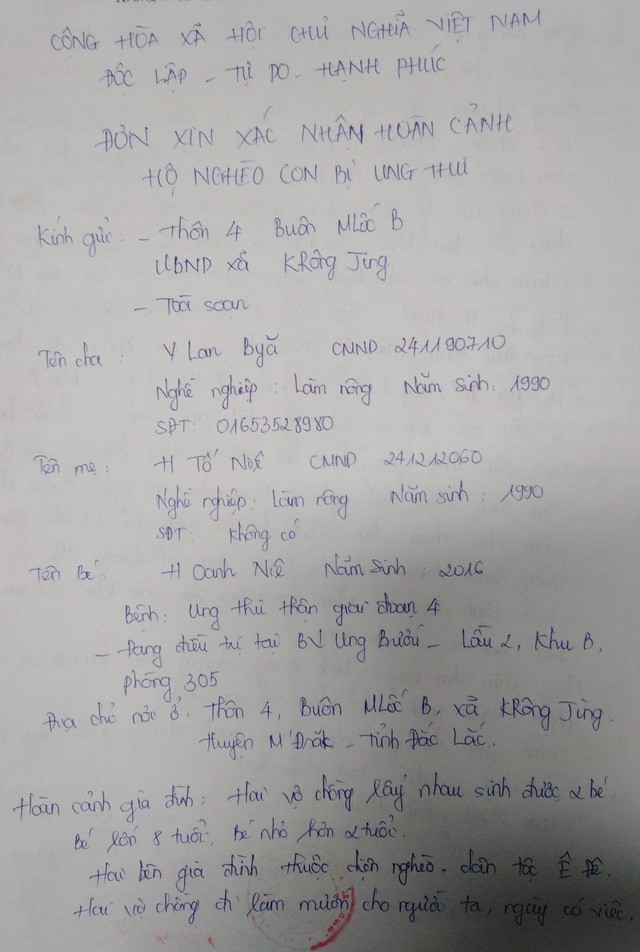 CÔNG HÒA XẢ HỘI CHỦ NGHĨA VIỆT NAM
ĐỘC LẬP - TỰ DO - HẠNH PHÚC
ĐƠN XIN XÁC NHẬN HOÀN CẢNH
HỘ NGHÈO CON BỊ UNG THƯ
Kính gửi: - Thôn 4 Buôn MLốc B
UBND xã KRông Jing
- Toà soạn
Tên cha : Y Lan Byă CMND 241190710
Nghề nghiệp : Làm nông Năm sinh: 1990
SĐT: 01653528980
Tên mẹ : H Tố Niê CMND 241212060
Nghề nghiệp: Làm nông Năm sinh : 1990
SĐT: Không có
Tên Bé H Oanh Niê Năm Sinh : 2016
Bệnh: Ung thư thận giai đoạn 4
- Đang điều trị tại BV Ung Bướu - Lầu 2, Khu B,
phòng 305
Địa chỉ nơi ở. Thôn 4, Buôn MLốc B, xã KRông Jing.
Huyện M'Đrăk - Tỉnh Đắc Lắc.
Hoàn cảnh gia đình: Hai vợ chồng lấy nhau sinh được 2 bé.
Bé lớn 8 tuổi, Bé nhỏ hơn 2 tuổi.
Hai bên gia đình thuộc diện nghèo. dân tộc Ê Đê.
Hai vợ chồng đi làm mướn cho người ta, ngày có việc,